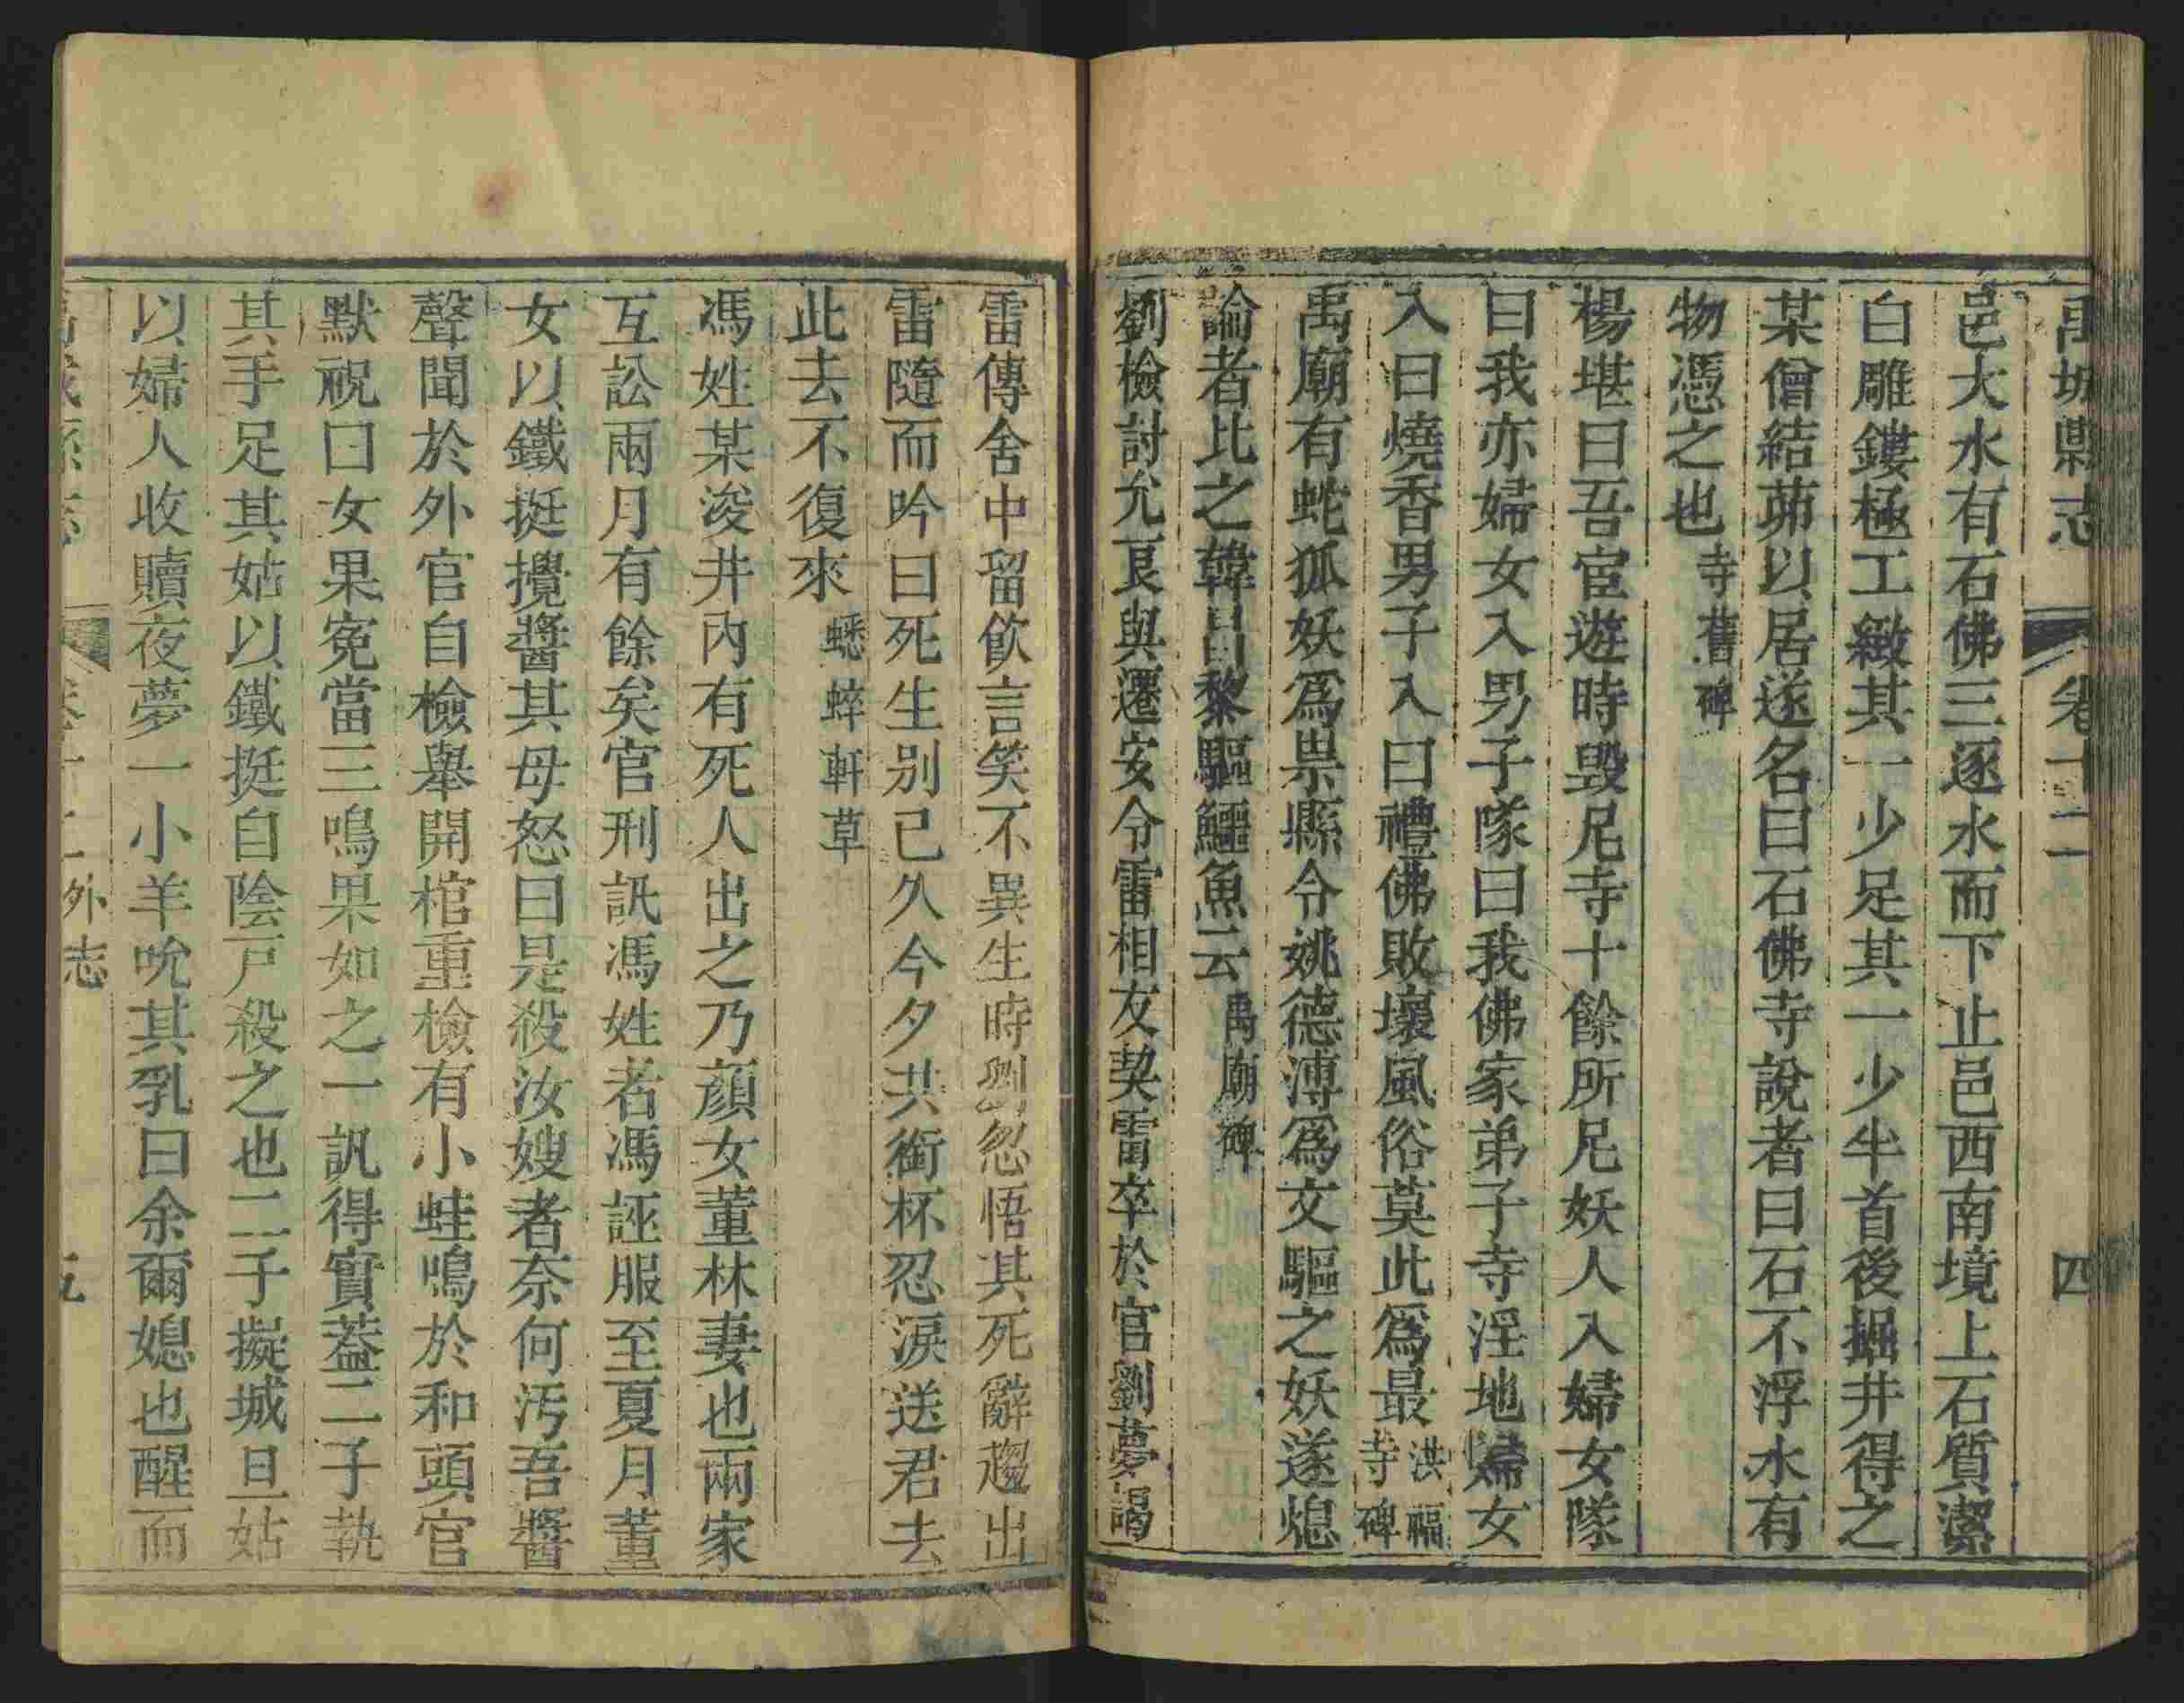 禹城縣志 卷十二 四
邑大水有石佛三逐水而下止邑西南境上石質潔
白雕鏤極工緻其一少足其一少半首後掘井得之
某僧結茆以居遂名曰石佛寺說者曰石不浮水有
物憑之也 寺舊碑
楊堪曰吾宦遊時毀尼寺十餘所尼妖人入婦女隊
曰我亦婦女入男子隊曰我佛家弟子寺淫地婦女
入曰燒香男子入曰禮佛敗壞風俗莫此爲最 洪福寺碑
禹廟有蛇狐妖爲祟縣令姚德溥爲文驅之妖遂熄
論者比之韓昌黎驅鱷魚云 禹廟碑
劉檢討允艮與遷安令雷相友契雷卒於官劉夢謁
雷傳舍中留飲言笑不異生時劉忽悟其死辭趨出
雷隨而吟曰死生别已久今夕共銜杯忍淚送君去
此去不復來 蟋蟀軒草
馮姓某浚井內有死人出之乃顏女董林妻也兩家
互訟兩月有餘矣官刑訊馮姓者馮誣服至夏月董
女以鐵挺攪醬其母怒曰是殺汝嫂者奈何汚吾醬
聲聞於外官自檢舉開棺重檢有小蛙鳴於和頭官
默祝曰女果寃當三鳴果如之一訊得實蓋二子執
其手足其姑以鐵挺自陰戸殺之也二子擬城旦姑
以婦人收贖夜夢一小羊吮其乳曰余爾媳也醒而
卷十二外志 五